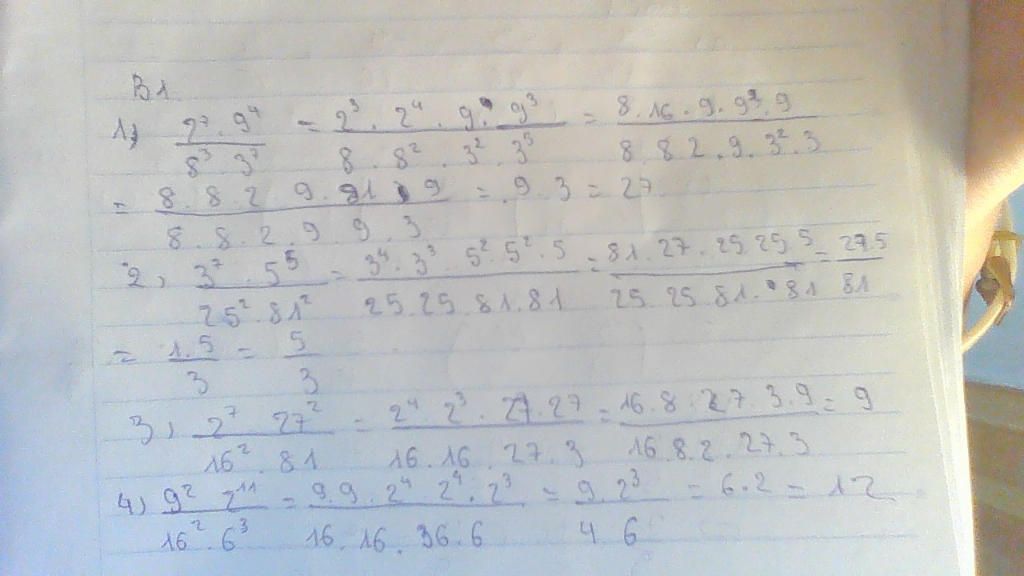 B1
1) 2⁷ . 9⁴ / 8³ 3⁷ = 2³ . 2⁴ . 9 . 9³ / 8 . 8² . 3² . 3⁵ = 8 . 16 . 9 . 9² . 9 / 8 8 2 . 9 . 3² . 3
= 8 . 8 . 2 9 . 91 9 / 8 . 8 . 2 . 9 9 . 3 = 9 . 3 = 27
2, 3⁷ . 5⁵ / 25² . 81² = 3⁴ . 3³ . 5² . 5² . 5 / 25 . 25 . 81 . 81 = 81 . 27 . 25 25 5 / 25 . 25 81 . 81 = 27.5 / 81
= 1.5 / 3 = 5 / 3
3, 2⁷ 27² / 16² . 81 = 2⁴ . 2³ . 27 . 27 / 16 . 16 . 27 . 3 = 16 . 8 . 27 . 3 . 9 / 16 . 8 . 2 . 27 . 3 = 9
4) 9² 2¹¹ / 16² . 6³ = 9 . 9 . 2⁴ 2⁴ . 2³ / 16 . 16 . 36 . 6 = 9 . 2³ / 4 . 6 = 6 . 2 = 12